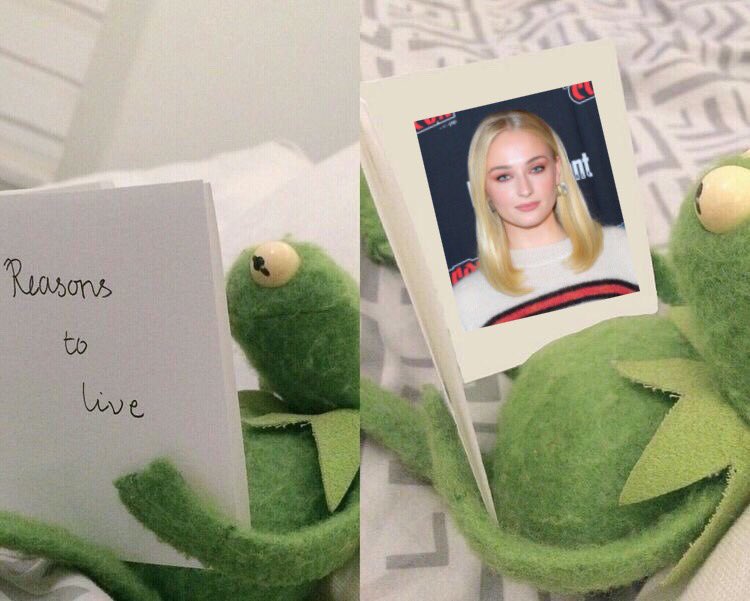 Reasons
to
live
nt